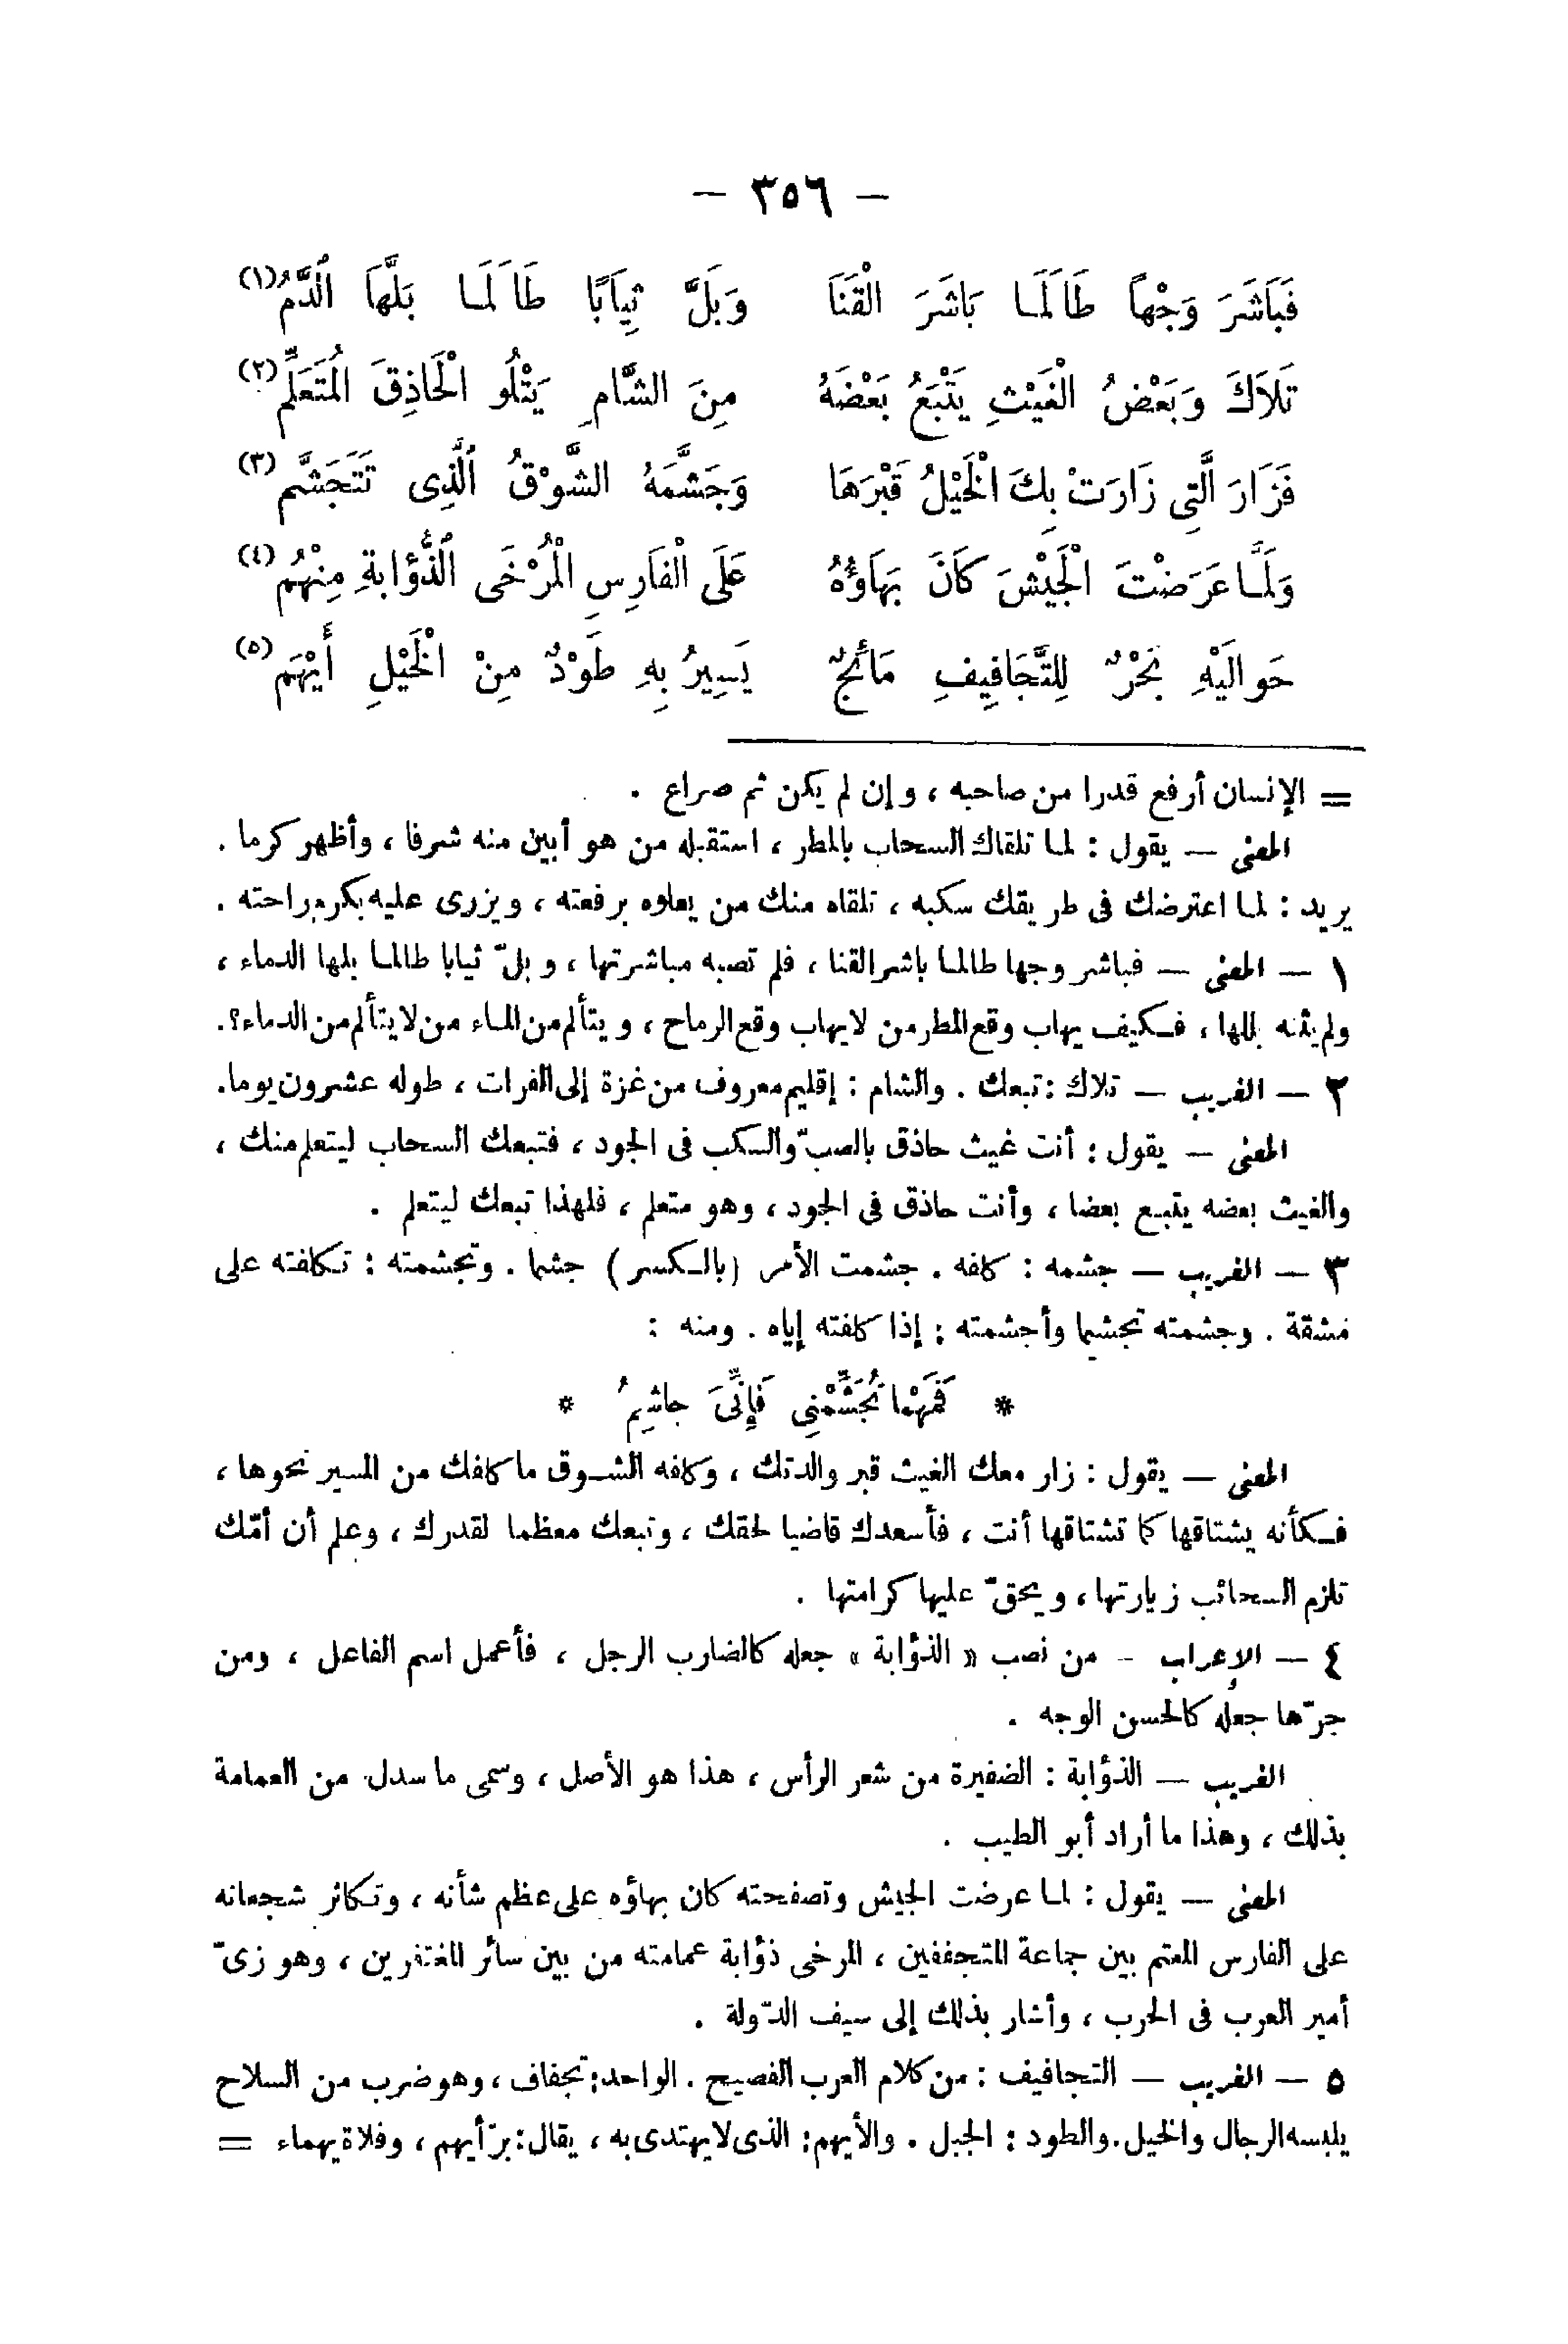 — ٣٥٦ —
فَبَاشَرَ وَجْهاً طَالَمَا بَاشَرَ الْقَنَا وَبَلَّ ثِيَابًا طَالَمَا بَلَّهَا الدَّمُ (١)
تَلاَكَ وَبَعْضُ الْغَيْثِ يَتْبَعُ بَعْضَهُ مِنَ الشَّامِ يَتْلُو الْحَاذِقَ الْمُتَعَلِّمُ (٢)
فَزَارَ الَّتِى زَارَتْ بِكَ الْخَيْلُ قَبْرَهَا وَجَشَّمَهُ الشَّوْقُ الَّذِى تَتَجَشَّمُ (٣)
وَلَمَّا عَرَضْتَ الْجَيْشَ كَانَ بَهَاؤُهُ عَلَى الْفَارِسِ الْمُرْخَى الذُّؤَابةِ مِنْهُمُ (٤)
حَوالَيْهِ بَحْرٌ لِلتَّجَافِيفِ مَائِجٌ يَسِيرُ بِهِ طَوْدٌ مِنْ الْخَيْلِ أَيْهَمُ (٥)
= الإنسان أرفع قدرا من صاحبه ، وإن لم يكن ثم صراع .
المعنى — يقول : لما تلقاك السحاب بالمطر ، استقبله من هو أبين منه شرفا ، وأظهر كرما .
يريد : لما اعترضك فى طريقك سكبه ، تلقاه منك من يعلوه برفعته ، ويزرى عليه بكرم راحته .
١ — المعنى — فباشر وجها طالما باشر القنا ، فلم تصبه مباشرتها ، وبلّ ثيابا طالما بلها الدماء ،
ولم يثنه بللها ، فكيف يهاب وقع المطر من لايهاب وقع الرماح ، ويتألم من الماء من لا يتألم من الدماء؟.
٢ — الغريب — تلاك : تبعك . والشام : إقليم معروف من غزة إلى الفرات ، طوله عشرون يوما.
المعنى — يقول : أنت غيث حاذق بالصبّ والسكب فى الجود ، فتبعك السحاب ليتعلم منك ،
والغيث بعضه يتبع بعضا ، وأنت حاذق فى الجود ، وهو متعلم ، فلهذا تبعك ليتعلم .
٣ — الغريب — جشمه : كلفه . جشمت الأمر (بالكسر) جشما . وتجشمته : تكلفته على
مشقة . وجشمته تجشيما وأجشمته : إذا كلفته إياه . ومنه :
* فَمَهْمَا تُجَشِّمْنِى فَإِنِّىَ جاشِمُ *
المعنى — يقول : زار معك الغيث قبر والدتك ، وكلفه الشوق ما كلفك من المسير نحوها ،
فكأنه يشتاقها كما تشتاقها أنت ، فأسعدك قاضيا لحقك ، وتبعك معظما لقدرك ، وعلم أن أمّك
تلزم السحائب زيارتها ، ويحقّ عليها كرامتها .
٤ — الإعراب - من نصب « الذؤابة » جعله كالضارب الرجل ، فأعمل اسم الفاعل ، ومن
جرّها جعله كالحسن الوجه .
الغريب — الذؤابة : الضفيرة من شعر الرأس ، هذا هو الأصل ، وسمى ما سدل من العمامة
بذلك ، وهذا ما أراد أبو الطيب .
المعنى — يقول : لما عرضت الجيش وتصفحته كان بهاؤه على عظم شأنه ، وتكاثر شجعانه
على الفارس المعتم بين جماعة المتجففين ، المرخى ذؤابة عمامته من بين سائر المغتفرين ، وهو زىّ
أمير العرب فى الحرب ، وأشار بذلك إلى سيف الدّولة .
٥ — الغريب — التجافيف : من كلام العرب الفصيح . الواحد: تجفاف ، وهو ضرب من السلاح
يلبسه الرجال والخيل. والطود : الجبل . والأيهم: الذى لا يهتدى به ، يقال: برّ أيهم ، وفلاة يهماء =